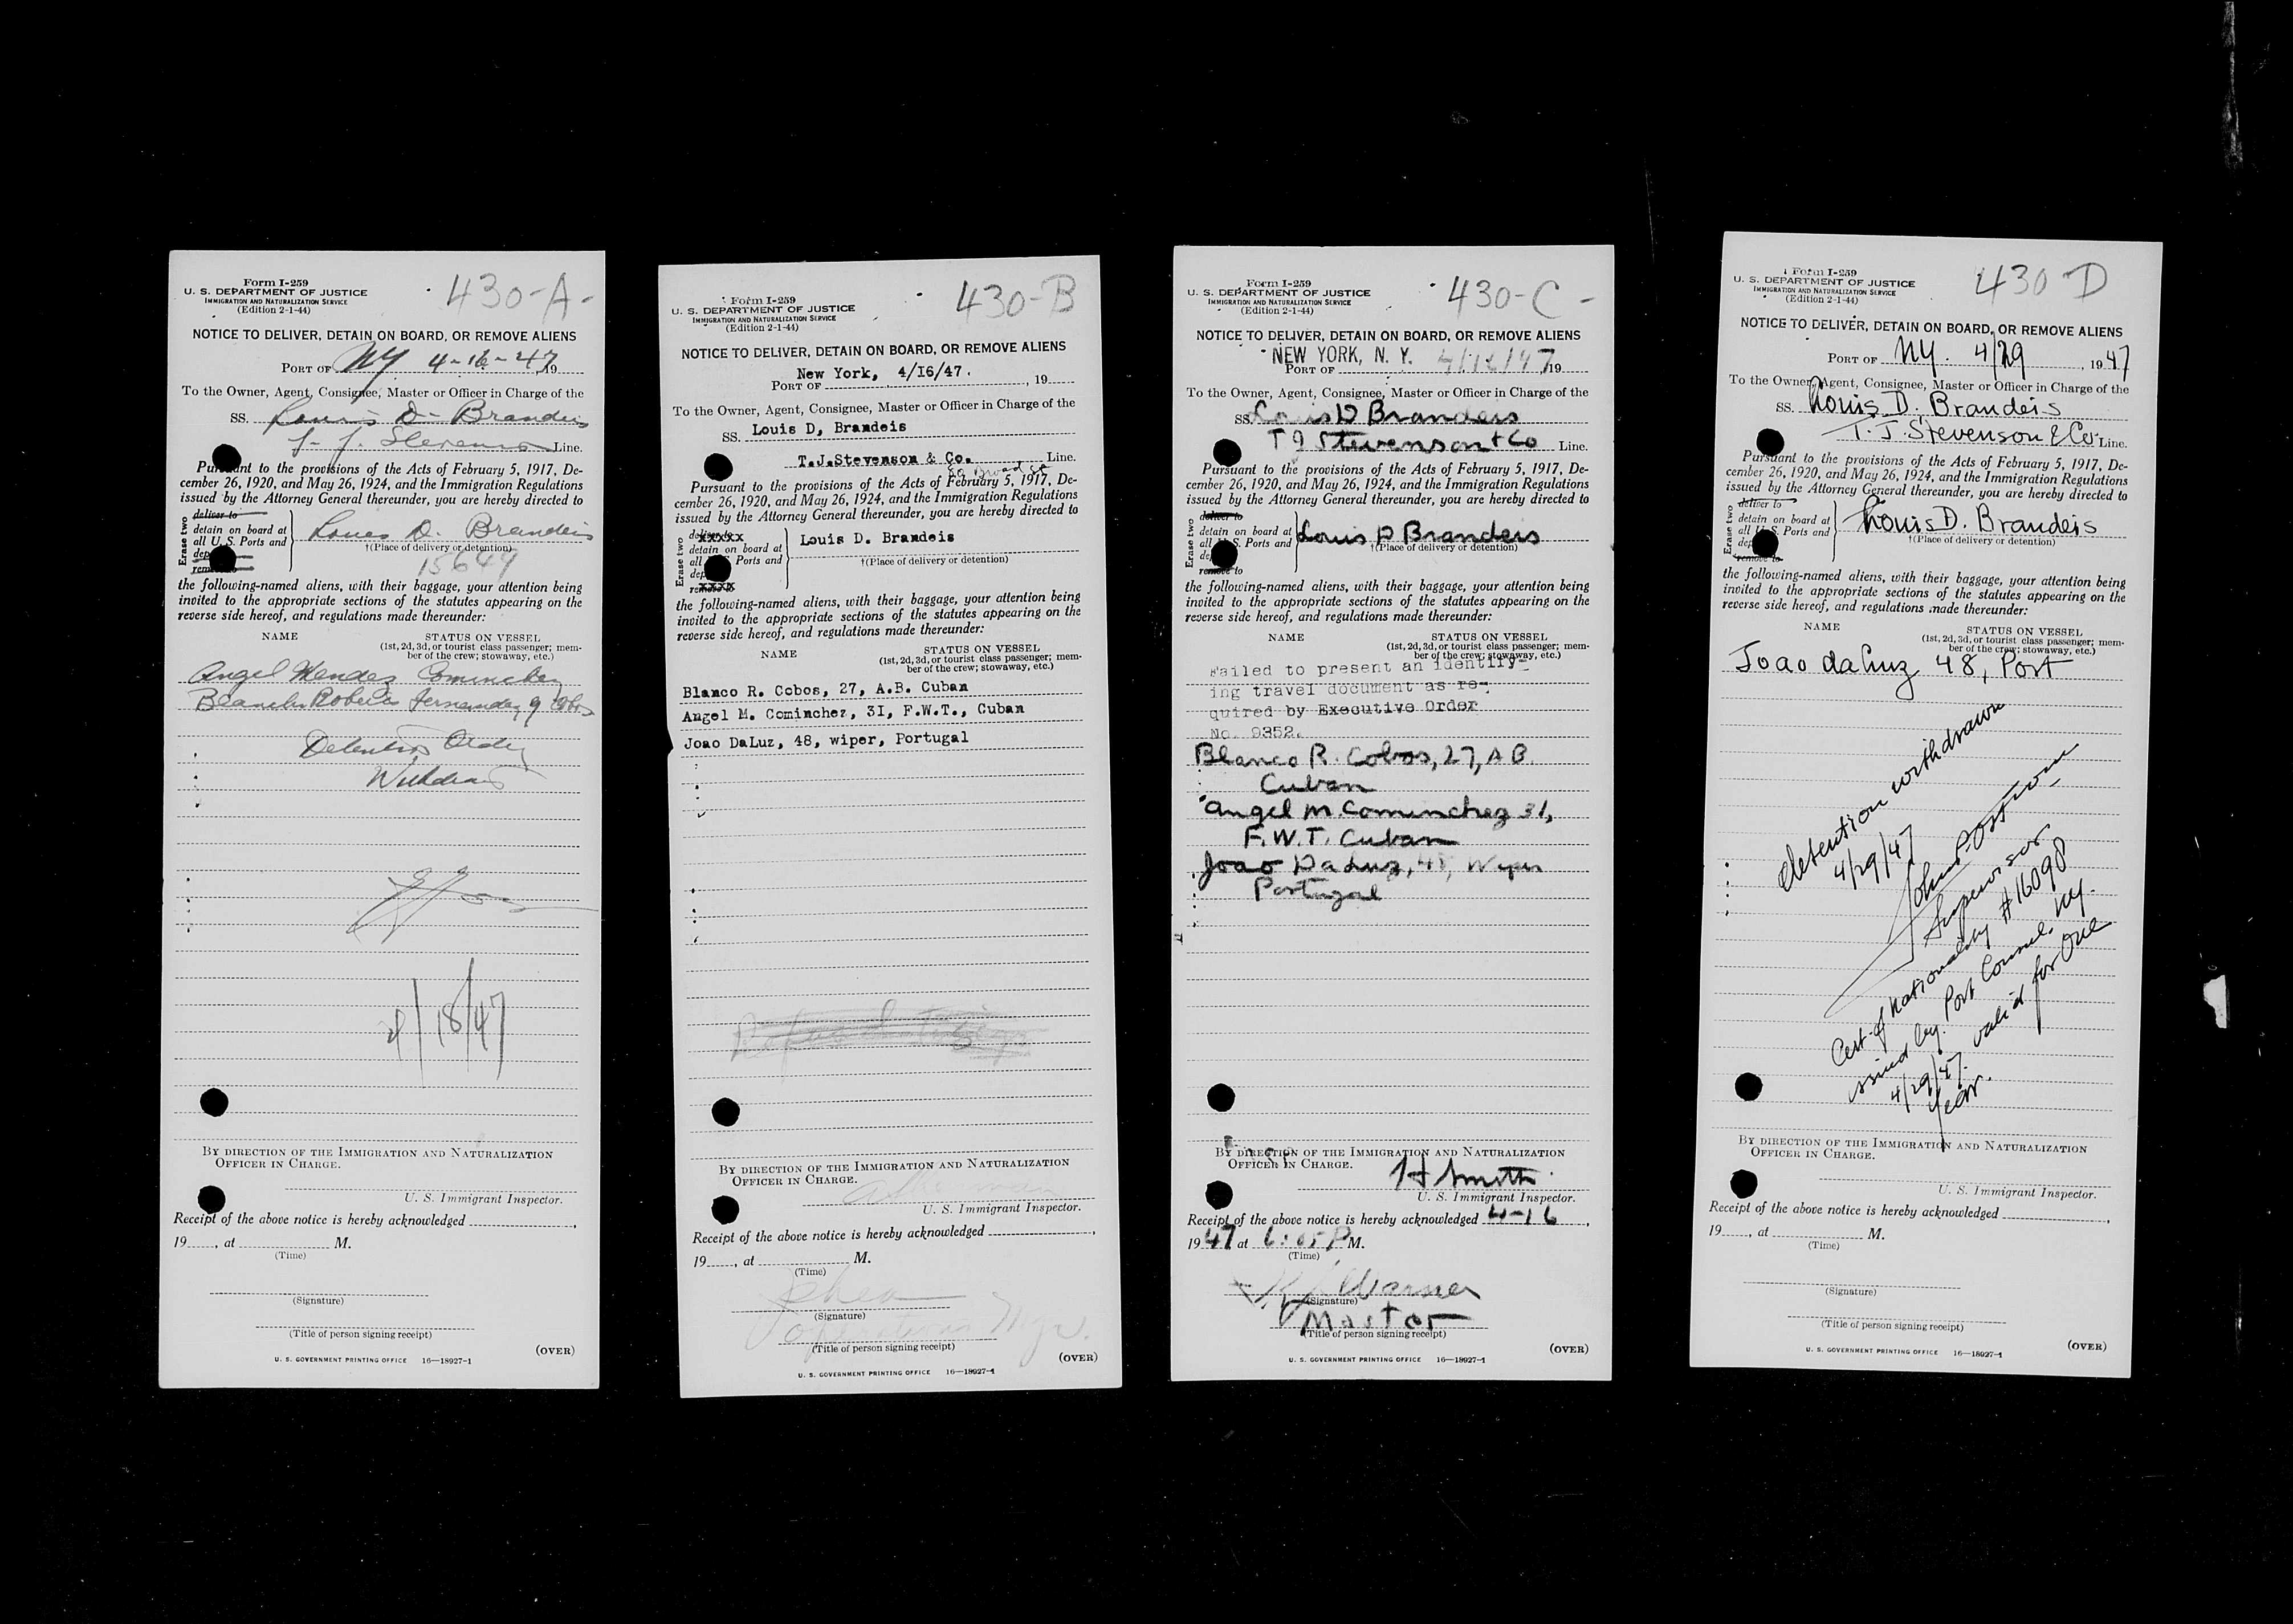 Form I-259
U. S. DEPARTMENT OF JUSTICE
IMMIGRATION AND NATURALIZATION SERVICE
(Edition 2-1-44)
430-A-
NOTICE TO DELIVER, DETAIN ON BOARD, OR REMOVE ALIENS
PORT OF NY 4-16-47, 19
To the Owner, Agent, Consignee, Master or Officer in Charge of the
SS. Louis D- Brandeis
Line.
Pursuant to the provisions of the Acts of February 5, 1917, De-
cember 26, 1920, and May 26, 1924, and the Immigration Regulations
issued by the Attorney General thereunder, you are hereby directed to
Erase two
deliver to
detain on board at
all U. S. Ports and
remove to
Louis D. Brandeis
†(Place of delivery or detention)
15649
the following-named aliens, with their baggage, your attention being
invited to the appropriate sections of the statutes appearing on the
reverse side hereof, and regulations made thereunder:
NAME
STATUS ON VESSEL
(1st, 2d, 3d, or tourist class passenger; mem-
ber of the crew; stowaway, etc.)
Angel Mendez Cominchez
Detention Order
Withdrawn
4/18/47
BY DIRECTION OF THE IMMIGRATION AND NATURALIZATION
OFFICER IN CHARGE.
U. S. Immigrant Inspector.
Receipt of the above notice is hereby acknowledged ,
19 , at M.
(Time)
(Signature)
(Title of person signing receipt)
(OVER)
U. S. GOVERNMENT PRINTING OFFICE 16—18927-1
Form I-259
U. S. DEPARTMENT OF JUSTICE
IMMIGRATION AND NATURALIZATION SERVICE
(Edition 2-1-44)
430-B
NOTICE TO DELIVER, DETAIN ON BOARD, OR REMOVE ALIENS
New York, 4/I6/47.
PORT OF , 19
To the Owner, Agent, Consignee, Master or Officer in Charge of the
SS. Louis D, Brandeis
T.J.Stevenson & Co. Line.
80 Broad St
Pursuant to the provisions of the Acts of February 5, 1917, De-
cember 26, 1920, and May 26, 1924, and the Immigration Regulations
issued by the Attorney General thereunder, you are hereby directed to
Erase two
detain on board at
all Ports and
remove to
Louis D. Brandeis
†(Place of delivery or detention)
the following-named aliens, with their baggage, your attention being
invited to the appropriate sections of the statutes appearing on the
reverse side hereof, and regulations made thereunder:
NAME
STATUS ON VESSEL
(1st, 2d, 3d, or tourist class passenger; mem-
ber of the crew; stowaway, etc.)
Blanco R. Cobos, 27, A.B. Cuban
Angel M. Cominchez, 3I, F.W.T., Cuban
Joao DaLuz, 48, wiper, Portugal
BY DIRECTION OF THE IMMIGRATION AND NATURALIZATION
OFFICER IN CHARGE.
U. S. Immigrant Inspector.
Receipt of the above notice is hereby acknowledged ,
19 , at M.
(Time)
(Signature)
Operations Mgr.
(Title of person signing receipt)
(OVER)
U. S. GOVERNMENT PRINTING OFFICE 16—18927-1
Form I-259
U. S. DEPARTMENT OF JUSTICE
IMMIGRATION AND NATURALIZATION SERVICE
(Edition 2-1-44)
430-C-
NOTICE TO DELIVER, DETAIN ON BOARD, OR REMOVE ALIENS
NEW YORK, N. Y. 4/16/47
PORT OF 19
To the Owner, Agent, Consignee, Master or Officer in Charge of the
SS. Louis D Brandeis
T J Stevenson + Co Line.
Pursuant to the provisions of the Acts of February 5, 1917, De-
cember 26, 1920, and May 26, 1924, and the Immigration Regulations
issued by the Attorney General thereunder, you are hereby directed to
Erase two
deliver to
detain on board at
all U. S. Ports and
remove to
Louis D Brandeis
†(Place of delivery or detention)
the following-named aliens, with their baggage, your attention being
invited to the appropriate sections of the statutes appearing on the
reverse side hereof, and regulations made thereunder:
NAME
STATUS ON VESSEL
(1st, 2d, 3d, or tourist class passenger; mem-
ber of the crew; stowaway, etc.)
Failed to present an identify-
ing travel document as re-
quired by Executive Order
No. 9352.
Blanco R. Cobos, 27, A B.
Cuban
Angel M Cominchez 31,
F.W.T. Cuban
Joao DaLuz, 48, Wiper
Portugal
BY DIRECTION OF THE IMMIGRATION AND NATURALIZATION
OFFICER IN CHARGE.
H Smith
U. S. Immigrant Inspector.
Receipt of the above notice is hereby acknowledged 4-16,
1947 at 6:05 P M.
(Time)
Warner
(Signature)
Master
(Title of person signing receipt)
(OVER)
U. S. GOVERNMENT PRINTING OFFICE 16—18927-1
Form I-259
U. S. DEPARTMENT OF JUSTICE
IMMIGRATION AND NATURALIZATION SERVICE
(Edition 2-1-44)
430 D
NOTICE TO DELIVER, DETAIN ON BOARD, OR REMOVE ALIENS
PORT OF NY. 4/29, 1947
To the Owner, Agent, Consignee, Master or Officer in Charge of the
SS. Louis D. Brandeis
T. J. Stevenson & Co. Line.
Pursuant to the provisions of the Acts of February 5, 1917, De-
cember 26, 1920, and May 26, 1924, and the Immigration Regulations
issued by the Attorney General thereunder, you are hereby directed to
Erase two
deliver to
detain on board at
all U. S. Ports and
remove to
Louis D. Brandeis
†(Place of delivery or detention)
the following-named aliens, with their baggage, your attention being
invited to the appropriate sections of the statutes appearing on the
reverse side hereof, and regulations made thereunder:
NAME
STATUS ON VESSEL
(1st, 2d, 3d, or tourist class passenger; mem-
ber of the crew; stowaway, etc.)
Joao daLuz 48, Port
detention withdrawn
4/29/47
John P.
Supervisor
Cert of Nationality #16090
issued by Port Consul. NY.
4/29/47. valid for one
year.
BY DIRECTION OF THE IMMIGRATION AND NATURALIZATION
OFFICER IN CHARGE.
U. S. Immigrant Inspector.
Receipt of the above notice is hereby acknowledged ,
19 , at M.
(Time)
(Signature)
(Title of person signing receipt)
(OVER)
U. S. GOVERNMENT PRINTING OFFICE 16—18927-1